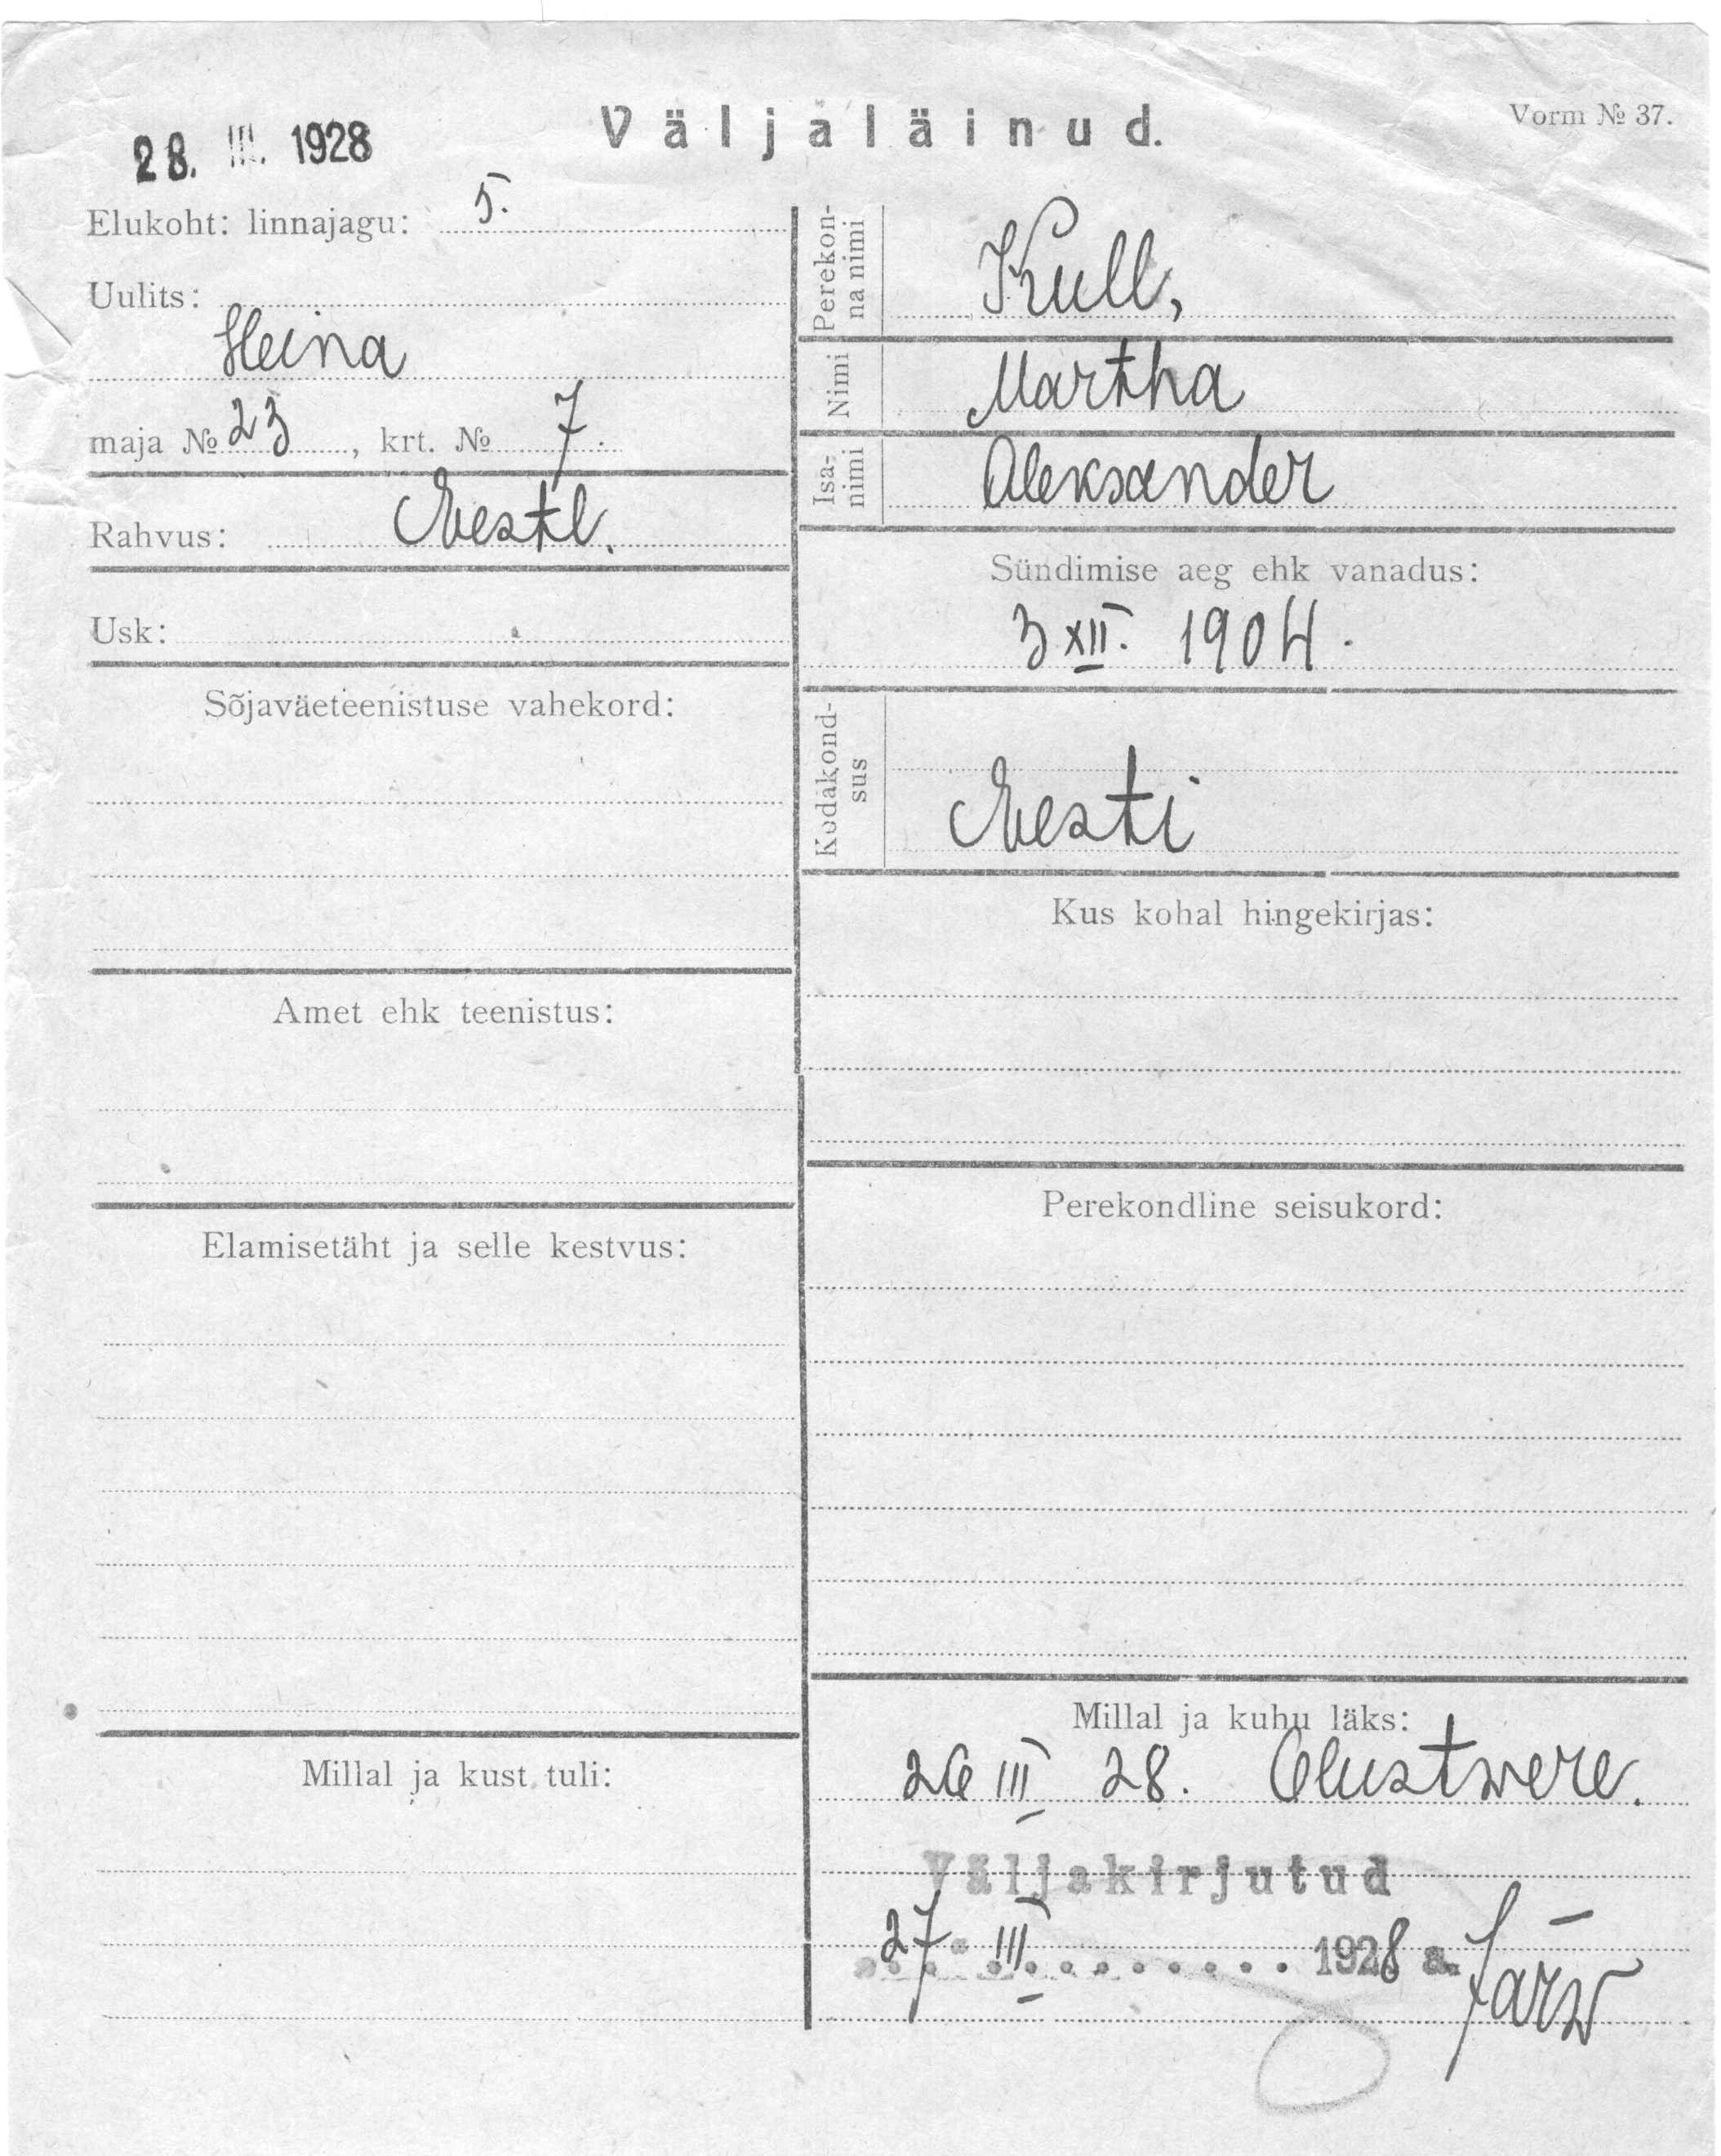 Väljaläinud.
Vorm № 37.
28. III. 1928
Elukoht: linnajagu: 5.
Uulits:
Heina
maja № 23, krt. № 7.
Rahvus: Eestl.
Usk:
Sõjaväeteenistuse vahekord:
Amet ehk teenistus:
Elamisetäht ja selle kestvus:
Millal ja kust tuli:
Perekon-
na nimi
Kull,
Nimi
Martha
Isa-
nimi
Aleksander
Sündimise aeg ehk vanadus:
3 XII. 1904.
Kodakond-
sus
Eesti
Kus kohal hingekirjas:
Perekondline seisukord:
Millal ja kuhu läks:
26 III 28. Olustwere.
Väljakirjutud
27 III 1928 a. Järw